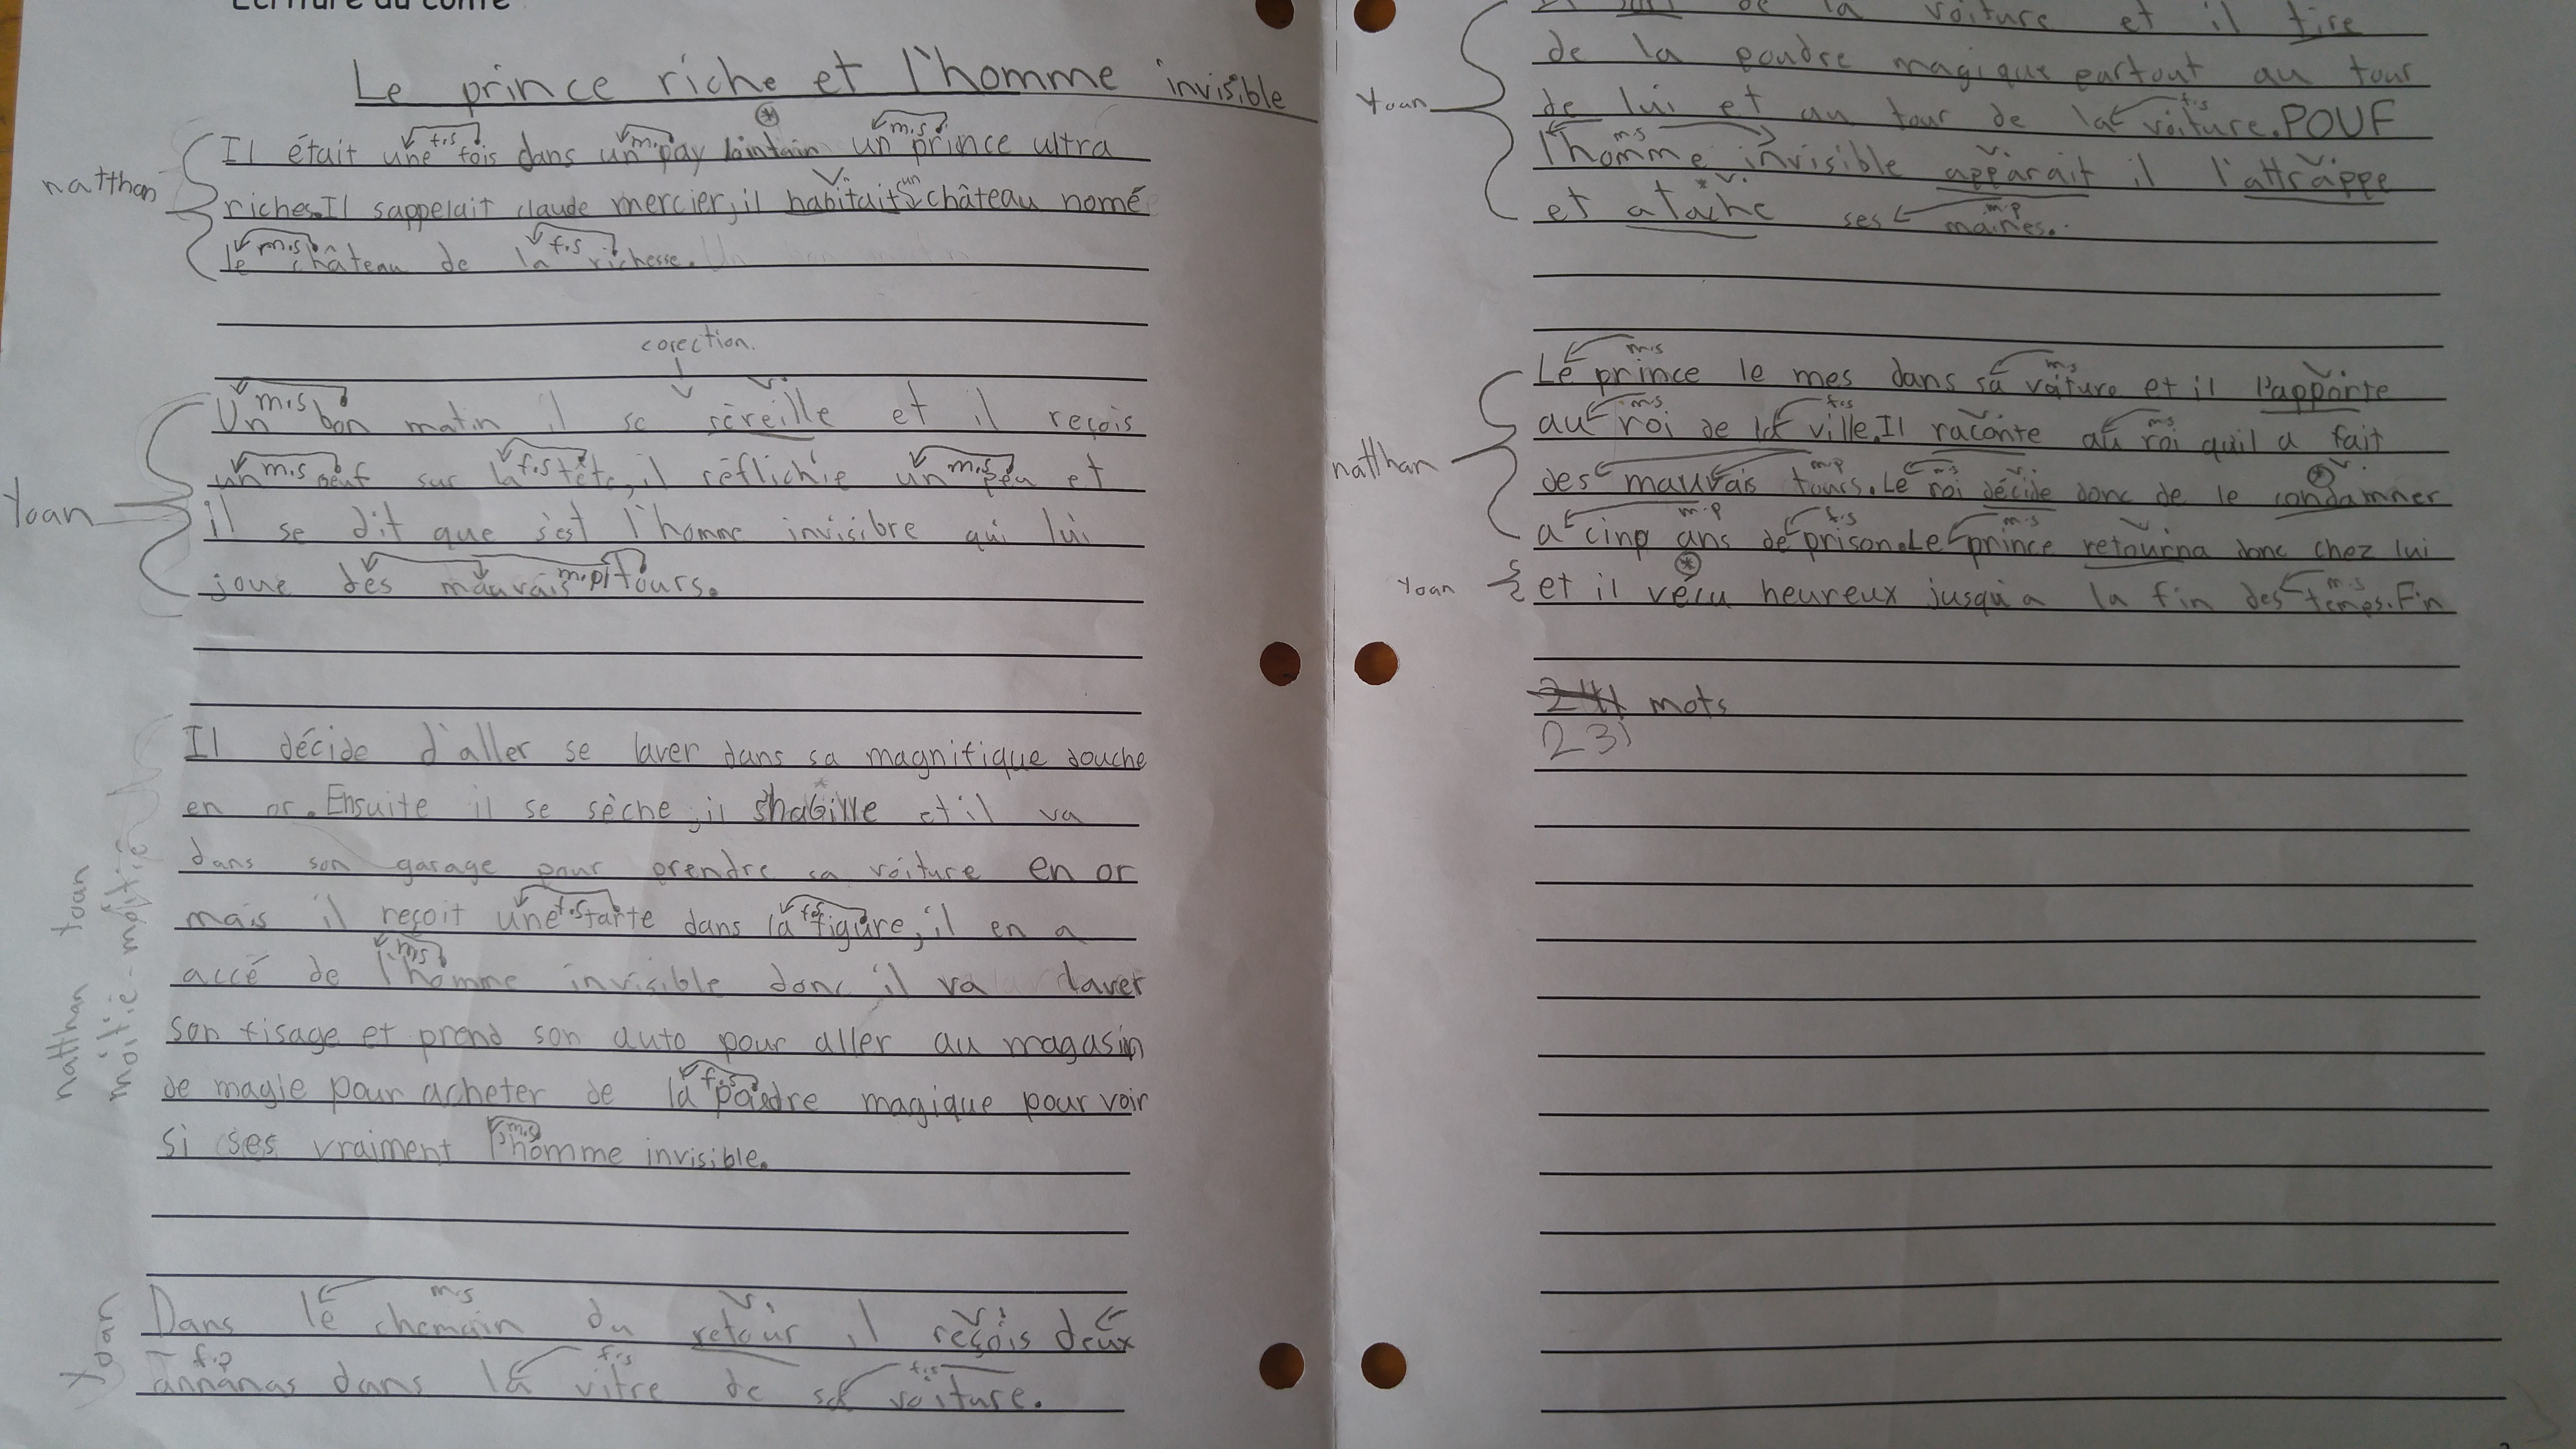 Écriture du conte
Le prince riche et l'homme invisible
natthan
Il était une fois dans un pay lointain un prince ultra
riches. Il sappelait claude mercier, il habituait un château nomé
le château de la richesse.
corection.
Yoan
Un bon matin il se réveille et il reçois
un oeuf sur la tête, il réflichie un peu et
il se dit que s'est l'homme invisibre qui lui
joue des mauvais tours.
natthan Yoan
moitié-moitié
Il décide d'aller se laver dans sa magnifique douche
en or. Ensuite il se sèche, il shabille et il va
dans son garage pour prendre sa voiture en or
mais il reçoit une tarte dans la figure, il en a
accé de l'homme invisible donc il va laver
son fisage et prend son auto pour aller au magasin
de magie pour acheter de la poudre magique pour voir
si ses vraiment l'homme invisible.
Yoan
Dans le chemain du retour il reçois deux
annanas dans la vitre de sa voiture.
Yoan
de la voiture et il tire
de la poudre magique partout au tour
de lui et au tour de la voiture. POUF
l'homme invisible apparait il l'attrappe
et atache ses maines.
natthan
Le prince le mes dans sa voiture et il l'apporte
au roi de la ville. Il raconte au roi quil a fait
des mauvais tours. Le roi décide donc de le condamner
a cinq ans de prison. Le prince retourna donc chez lui
Yoan
et il vécu heureux jusqu'a la fin des temps. Fin
241 mots
231